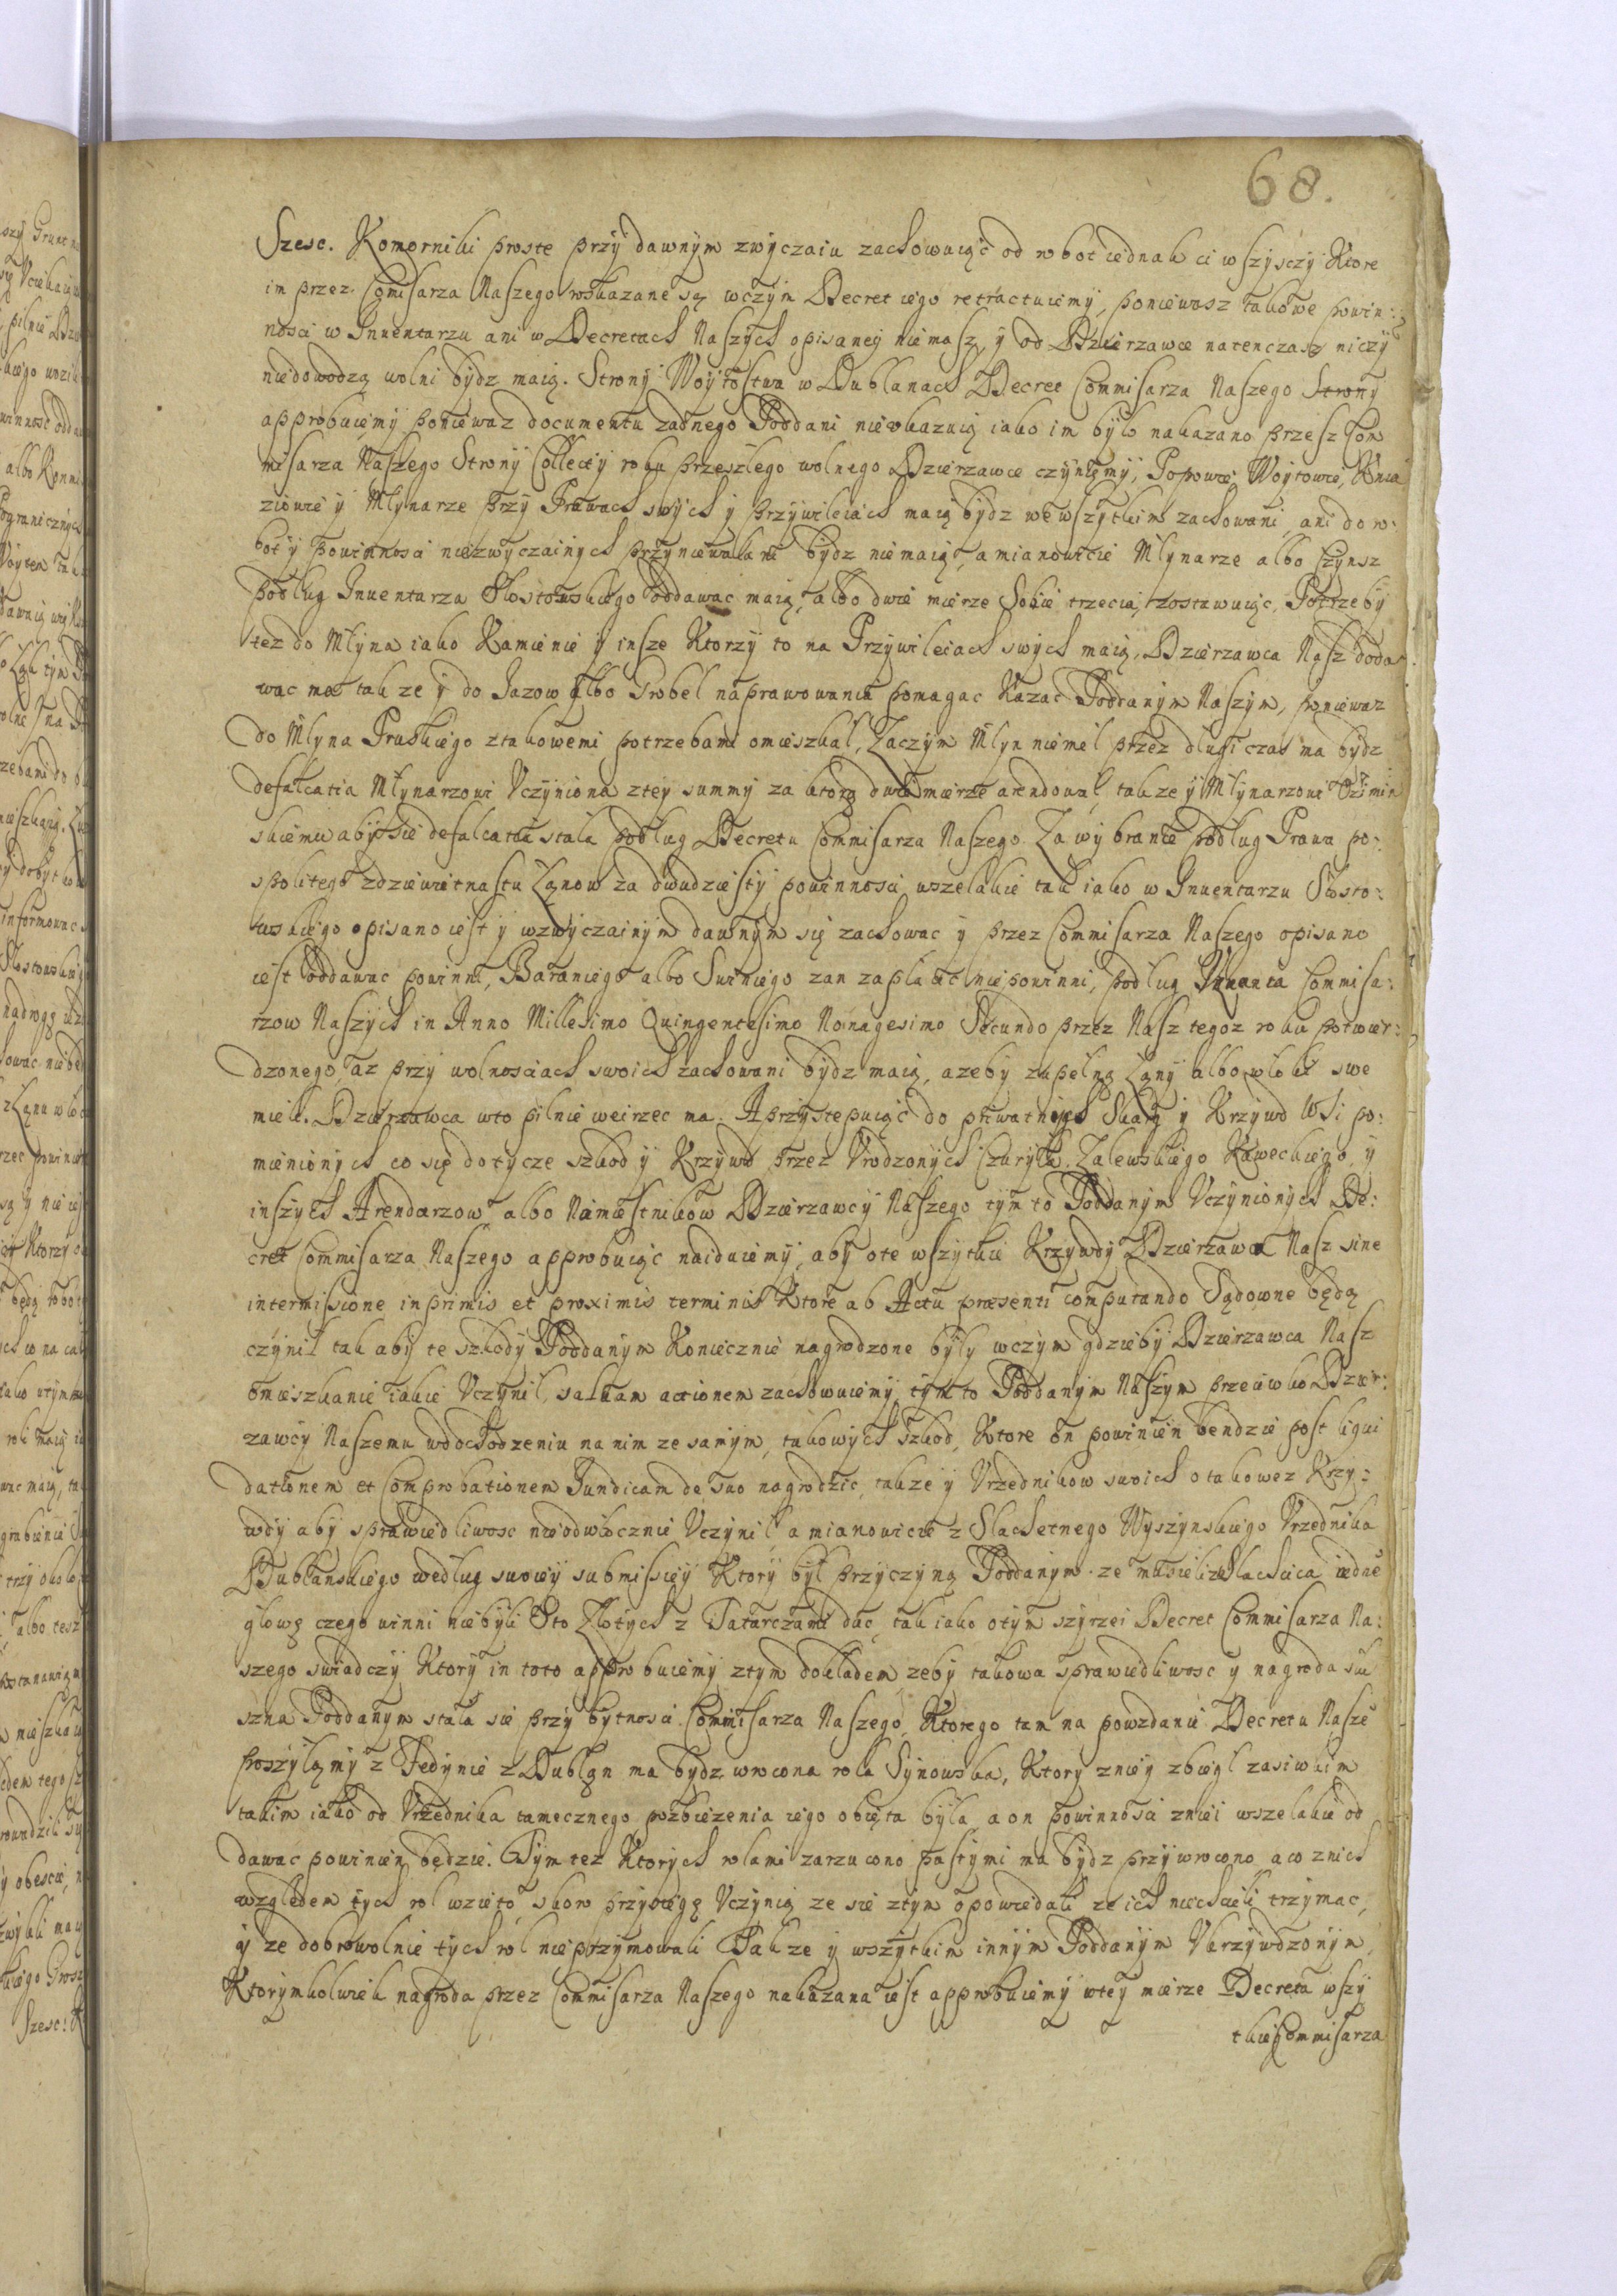 68.
Szesc. Komorniki proste przy dawnym zwyczaiu zachowuiąc od robot iednak ci wszysczy Ktore
im przez Comisarza Naszego wskazane są wczym Decret iego retractuiemy, poniewasz takowe powin:
nosci w Inuentarzu ani w Decretach Naszych opisaney niemasz, y od Dzierzawce natenczasz niczy
niedowodzą wolni bydz maią. Strony Woytostwa w Dublanach Decret Commisarza Naszego Strony
approbuiemy poniewaz documentu zadnego Poddani nieokazuią iako im było nakazano przesz Com
misarza Naszego Strony Collecty roku przeszlego wolnego Dzierzawce czyniemy, Popowie Woytowie, Knia
ziowie y Mlynarze przy Prawach swych y przywileiach maią bydz wewszytkim zachowani, ani do ro:
boty powinnosci niezwyczainych przyniewalani bydz niemaią, a mianowicie Mlynarze albo Czynsz
podlug Inuentarza Slostowskiego oddawac maią, albo dwie mierze Sobie trzecią zostawuiąc, Potrzeby
tez do Mlyna iako Kamienie y insze Ktorzy to na Przywileiach swych maią, Dzierzawca Nasz doda:
wac ma takze y do Iazow albo Grobel naprawowania pomagac Kazac Poddanym Naszym, poniewaz
do Mlyna Pruskiego ztakowemi potrzebami omieszkal, Zaczym Mlyn niemel przez dlugi czas ma bydz
defalcatia Mlynarzowi Vczyniona ztey summy za ktorą dwie mierze arendowal, takze y Mlynarzowi Ozimin
skiemu aby sie defalcatia stala podlug Decretu Commisarza Naszego. Za wybranie podlug Prawa po:
spolitego zdziewietnastu Łanow za dwudziesty powinnosci wszelakie tak iako w Inuentarzu Slosto:
wskiego opisano iest y wzwyczainym dawnym się zachowac y przez Commisarza Naszego opisano
iest oddawac powinni, Baraniego albo Swiniego zan zaplacic niepowinni, podlug Vznania Commisa:
rzow Naszych in Anno Millesimo Quingentesimo Nonagesimo Secundo przez Nasz tegoz roku potwier:
dzonego, az przy wolnosciach swoich zachowani bydz maią, azeby zupelną Łany albo wloki swe
mieli. Dzierzawca wto pilnie weirzec ma. A przystepuiąc do priwatnych Skarg y Krzywd Wsi po:
mienionych co się dotycze szkod y Krzywd przez Vrodzonych Czuryla, Zalewskiego Kaweckiego, y
inszych Arendarzow albo Namiestnikow Dzierzawcy Naszego tym to Poddanym Vczynionych De:
cret Commisarza Naszego approbuiąc naiduiemy, aby ote wszytkie Krzywdy Dzierzawca Nasz sine
intermissione in primis et proximis terminis Ktore ab Actu præsenti computando Sądowne będą
czynil tak aby te szkody Poddanym Koniecznie nagrodzone były wczym gdzieby Dzierzawca Nasz
omieszkanie iakie Vczynil, saluam actionem zachowuiemy tym to Poddanym Naszym przeciwko Dzier:
zawcy Naszemu wdochodzeniu na nim ze samym, takowych szkod, Ktore on powinien bendzie post liqui
dationem et Comprobationem Iuridicam de suo nagrodzic, takze y Vrzednikow swoich o takowez Krzy:
wdy aby sprawiedliwosc nieodwlocznie Vczynil, a mianowicie z Slachetnego Wyszynskiego Vrzednika
Dublanskiego wedlug swoiey submissiey Ktory był przyczyną Poddanym ze musieli zaslachcica iedne
glowę czego winni niebyli Sto Zlotych z Tatarczami dac, tak iako otym szyrzei Decret Commisarza Na:
szego swiadczy Ktory in toto approbuiemy ztym dokladem zeby takowa sprawiedliwosc y nagroda slu
szna Poddanym stala sie przy bytnosci Commisarza Naszego, Ktorego tam na powzdanie Decretu Nasze
poszylamy z Fedynie z Dublan ma bydz wrocona rola Synowska, Ktory zniey zbiegl zasiwkim
takim iako od Vrzednika tamecznego pozbiezenia iego obięta byla, a on powinnosci zniei wszelakie od
dawac powinien będzie. Tym tez Ktorych rolami zarzucono pastymi ma bydz przywrocono, aco znich
względem tych rol wzieto, skoro przysięgę Vczynią ze sie ztym opowiedali ze ich niechcieli trzymac,
y ze dobrowolnie tych rol nieprzymowali Takze y wszytkim innym Poddanym Vkrzywdzonym,
Ktorymkolwiek nagroda przez Commisarza Naszego nakazana iest approbuiemy wtey mierze Decreta wszy
tkie Commisarza